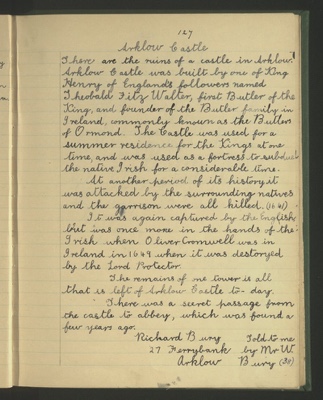 127
Arklow Castle
There are the ruins of a castle in Arklow.
Arklow Castle was built by one of King
Henry of England's followers named
Theobald Fitz Walter, first Butler of the
King, and founder of the Butler family in
Ireland, commonly known as the Butlers
of Ormond. The Castle was used for a
summer residence for the Kings at one
time, and was used as a fortress to subdue
the native Irish for a considerable time.
At another period of its history it
was attacked by the surrounding natives
and the garrison were all killed. (1641)
It was again captured by the English
but was once more in the hands of the
Irish when Oliver Cromwell was in
Ireland in 1649 when it was destoryed
by the Lord Protector.
The remains of one tower is all
that is left of Arklow Castle to-day.
There was a secret passage from
the castle to abbey, which was found a
few years ago.
Richard Bury Told to me
27 Ferrybank by Mr W.
Arklow Bury